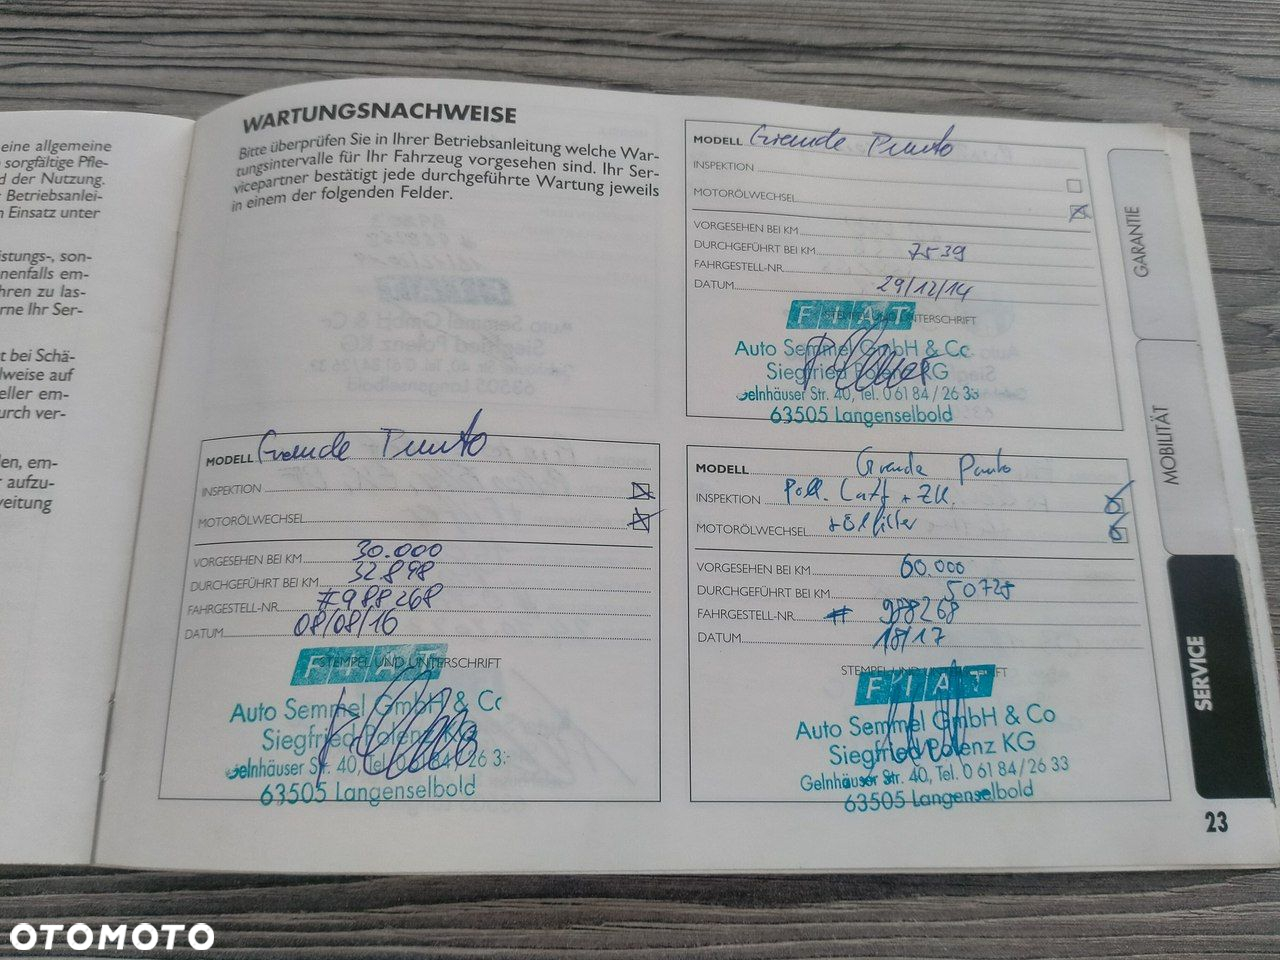 eine allgemeine
sorgfältige Pfle-
d der Nutzung.
Betriebsanlei-
Einsatz unter
istungs-, son-
nenfalls em-
hren zu las-
rne Ihr Ser-
t bei Schä-
lweise auf
eller em-
urch ver-
den, em-
aufzu-
veitung
WARTUNGSNACHWEISE
Bitte überprüfen Sie in Ihrer Betriebsanleitung welche War-
tungsintervalle für Ihr Fahrzeug vorgesehen sind. Ihr Ser-
vicepartner bestätigt jede durchgeführte Wartung jeweils
in einem der folgenden Felder.
MODELL Grande Punto
INSPEKTION
MOTORÖLWECHSEL
VORGESEHEN BEI KM
DURCHGEFÜHRT BEI KM 7539
FAHRGESTELL-NR
DATUM 29/12/14
FIAT
STEMPEL UND UNTERSCHRIFT
Auto Semmel GmbH & Co
Siegfried Polenz KG
elnhäuser Str. 40, Tel. 0 61 84 / 26 33
63505 Langenselbold
MODELL Grande Punto
INSPEKTION
MOTORÖLWECHSEL
VORGESEHEN BEI KM 30.000
DURCHGEFÜHRT BEI KM 32.898
FAHRGESTELL-NR #988268
DATUM 08/08/16
FIAT
STEMPEL UND UNTERSCHRIFT
Auto Semmel GmbH & Co
Siegfried Polenz KG
elnhäuser Str. 40, Tel. 0 61 84 / 26 3
63505 Langenselbold
MODELL Grande Punto
INSPEKTION Poll. Luft + ZK.
MOTORÖLWECHSEL + Ölfilter
VORGESEHEN BEI KM 60.000
DURCHGEFÜHRT BEI KM 50725
FAHRGESTELL-NR # 988268
DATUM 10/17
STEMPEL UND UNTERSCHRIFT
FIAT
Auto Semmel GmbH & Co
Siegfried Polenz KG
Gelnhäuser Str. 40, Tel. 0 61 84 / 26 33
63505 Langenselbold
GARANTIE
MOBILITÄT
SERVICE
23
OTOMOTO